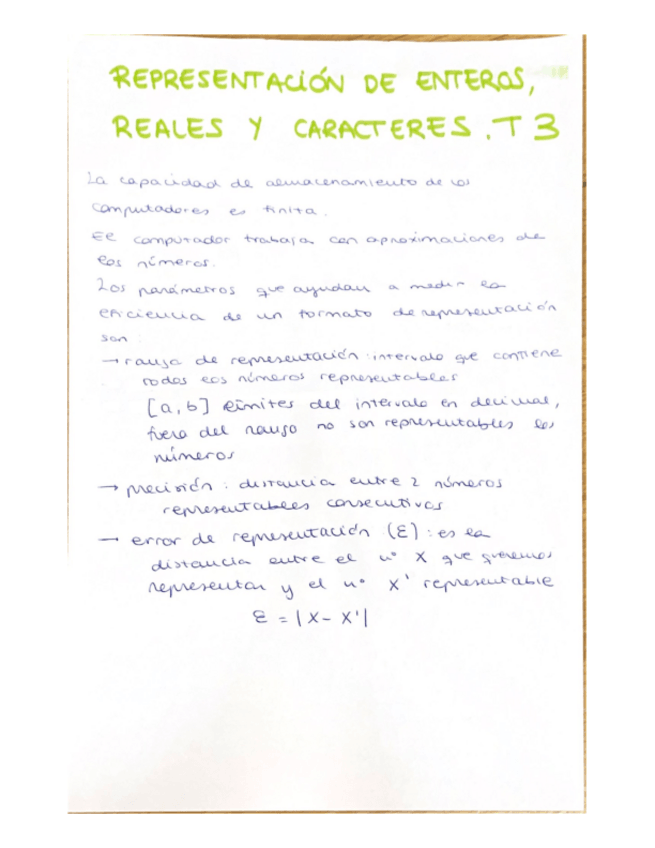 REPRESENTACIÓN DE ENTEROS,
REALES Y CARACTERES. T3
La capacidad de almacenamiento de los
computadores es finita.
El computador trabaja con aproximaciones de
los números.
Los parámetros que ayudan a medir la
eficiencia de un formato de representación
son:
→ rango de representación: intervalo que contiene
todos los números representables
[a, b] límites del intervalo en decimal,
fuera del rango no son representables los
números
→ precisión: distancia entre 2 números
representables consecutivos
→ error de representación (ε): es la
distancia entre el nº X que queremos
representar y el nº X' representable
ε = |X - X'|